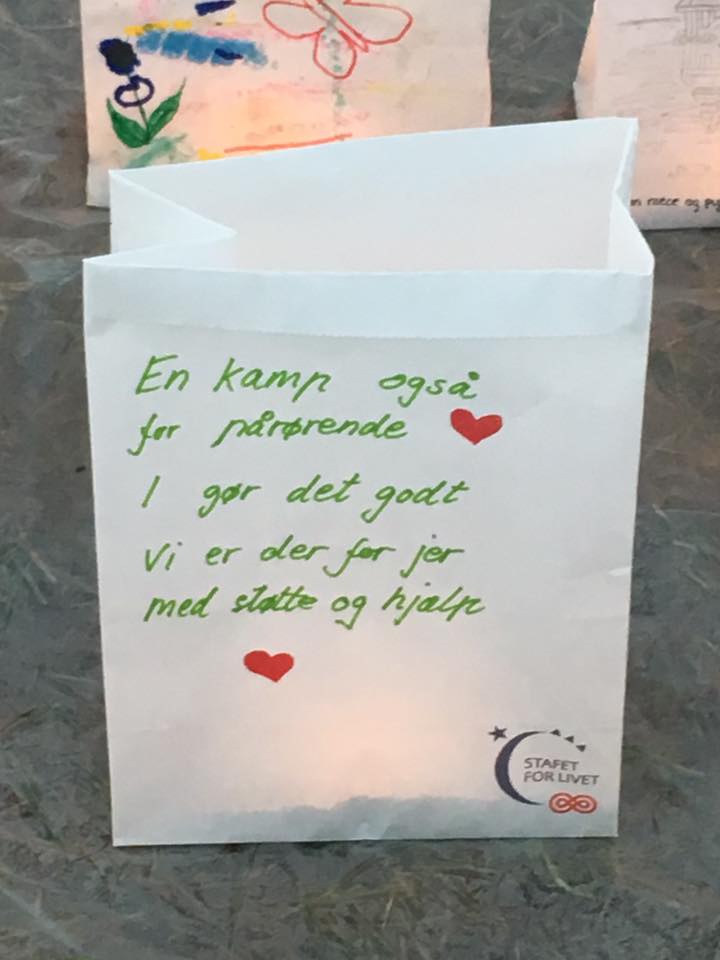 in niece og
En kamp også
for pårørende
I gør det godt
Vi er der for jer
med støtte og hjælp
STAFET
FOR LIVET